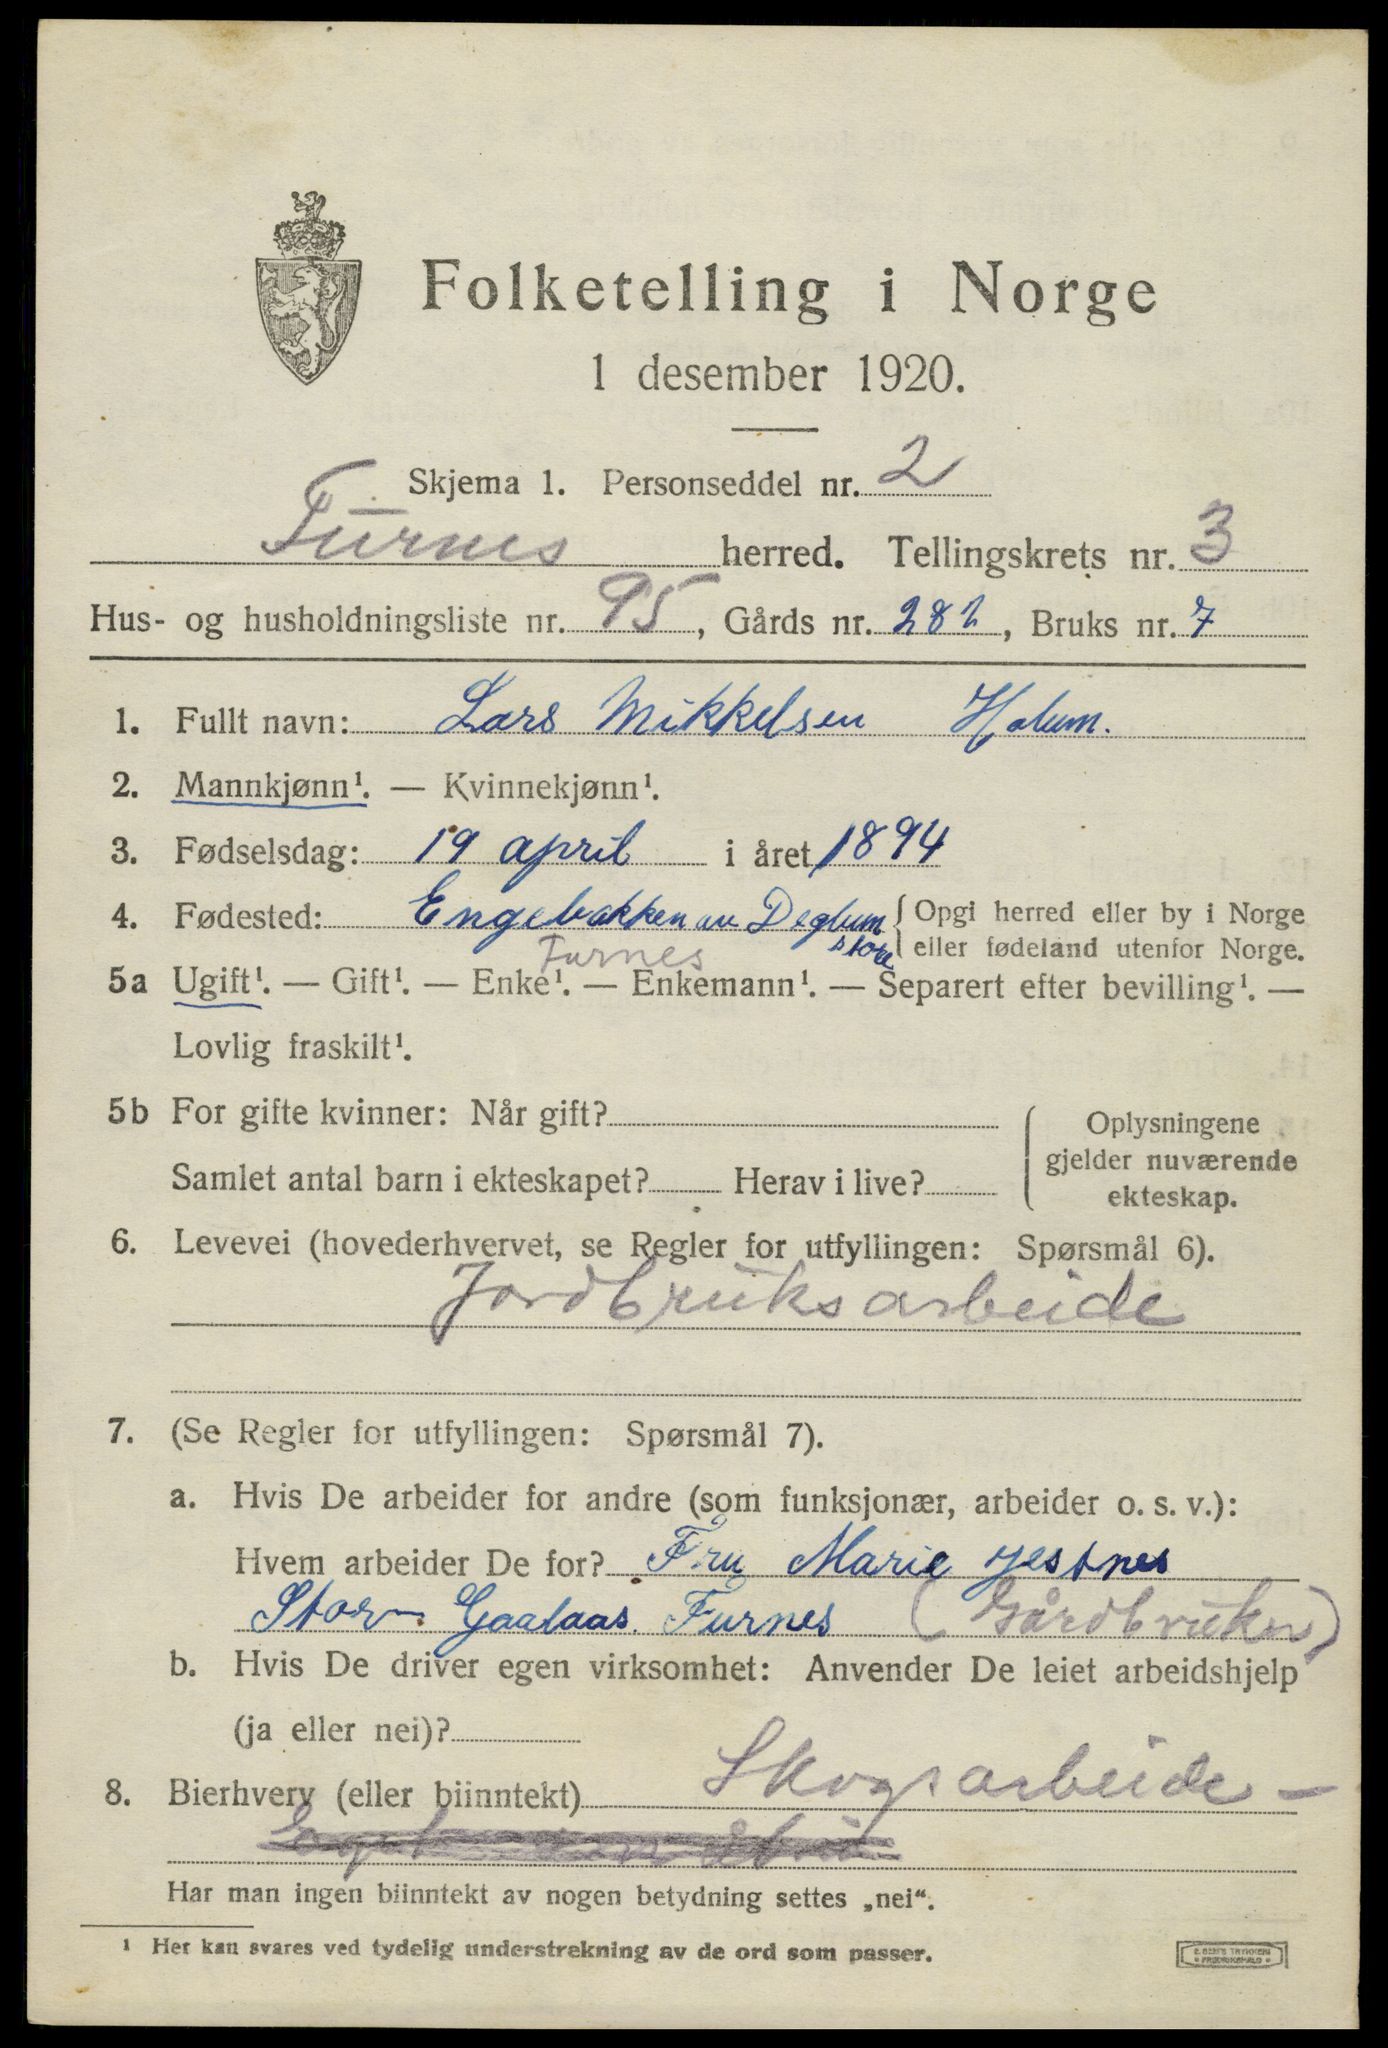 Folketelling i Norge
1 desember 1920.
Skjema 1. Personseddel nr. 2
Furnes herred. Tellingskrets nr. 3
Hus- og husholdningsliste nr. 95, Gårds nr. 282, Bruks nr. 7
1. Fullt navn: Lars Mikkelsen Holum.
2. Mannkjønn¹. — Kvinnekjønn¹.
3. Fødselsdag: 19 april i året 1894
4. Fødested: Engebakken av Deglum { Opgi herred eller by i Norge
store eller fødeland utenfor Norge.
Furnes
5a Ugift¹. — Gift¹. — Enke¹. — Enkemann¹. — Separert efter bevilling¹. —
Lovlig fraskilt¹.
5b For gifte kvinner: Når gift? { Oplysningene
gjelder nuværende
Samlet antal barn i ekteskapet? Herav i live?
ekteskap.
6. Levevei (hovederhvervet, se Regler for utfyllingen: Spørsmål 6).
Jordbruksarbeide
7. (Se Regler for utfyllingen: Spørsmål 7).
a. Hvis De arbeider for andre (som funksjonær, arbeider o. s. v.):
Hvem arbeider De for? Fru Marie Jestnes
Stor- Gaalaas. Furnes (Gårdbruker)
b. Hvis De driver egen virksomhet: Anvender De leiet arbeidshjelp
(ja eller nei)?
8. Bierhverv (eller biinntekt) Skogsarbeide -
Har man ingen biinntekt av nogen betydning settes „nei“.
¹ Her kan svares ved tydelig understrekning av de ord som passer.